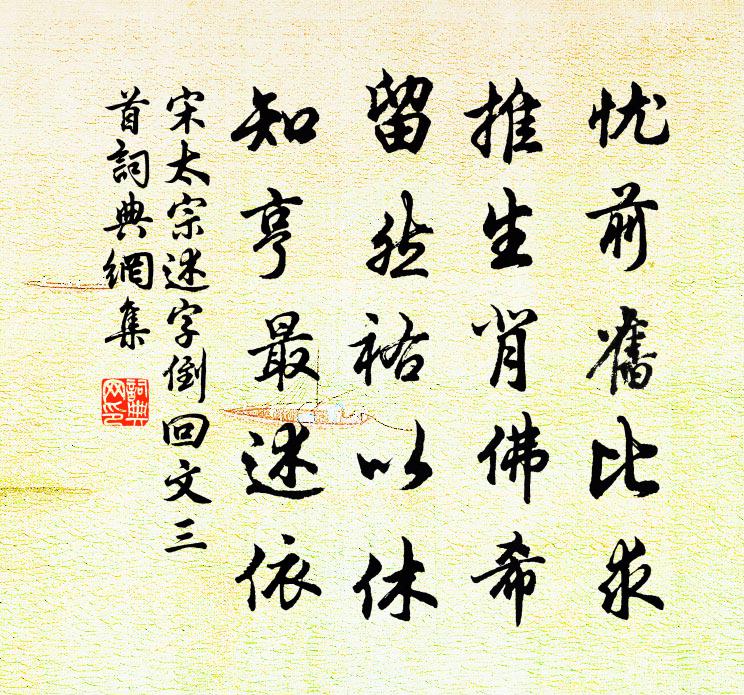 忧前旧比求
推生肖佛希
留然裕以休
知亨最述依
宋太宗述字倒回文三
首詞典網集
詞典网印